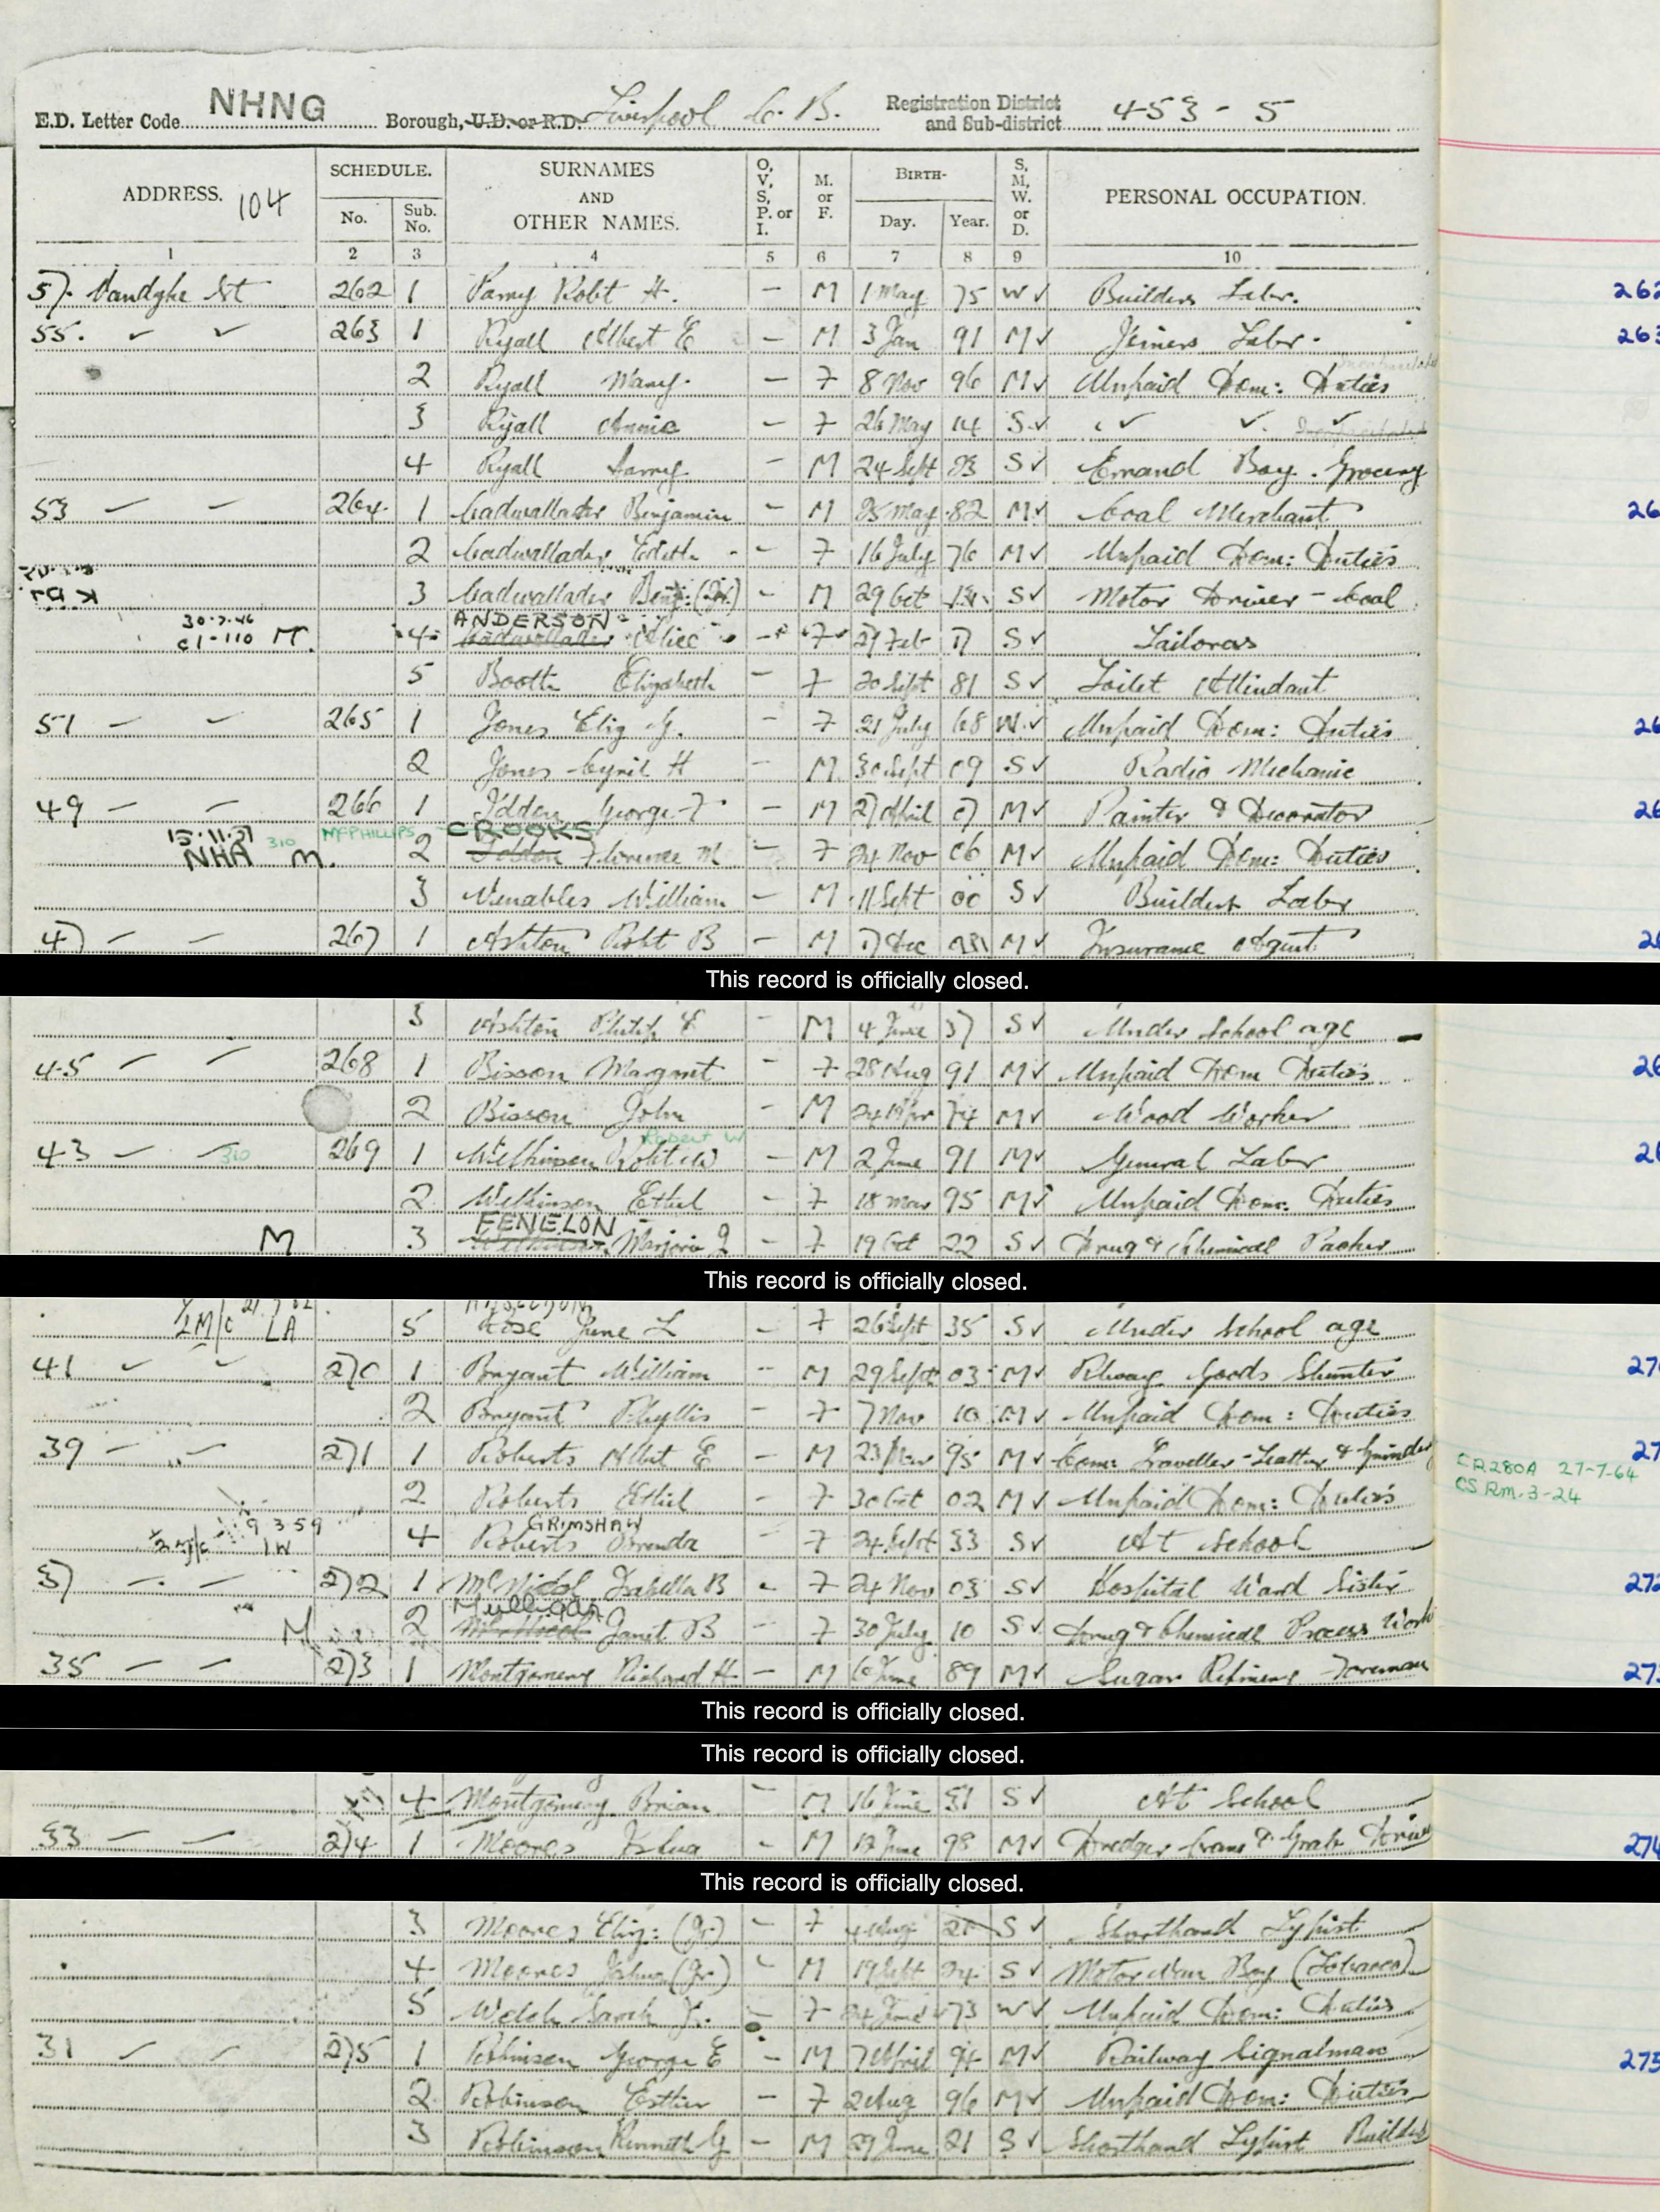 E.D. Letter Code NHNG Borough, U.D. or R.D. Liverpool C. B. Registration District and Sub-district 453-5
ADDRESS. 104 SCHEDULE. No. Sub. No. SURNAMES AND OTHER NAMES. O, V, S, P. or I. M. or F. BIRTH- Day. Year. S, M, W. or D. PERSONAL OCCUPATION.
1 2 3 4 5 6 7 8 9 10
57. Vandyke St 262 1 Parry Robt H. – M 1 May 75 W ✓ Builders Labr. 262
55. ✓ ✓ 263 1 Ryall Albert E – M 3 Jan 91 M ✓ Joiners Labr. 263
2 Ryall Mary. – F 8 Nov 96 M ✓ Unpaid Dom: Duties
3 Ryall Annie – F 26 May 14 S ✓ ✓ ✓ ✓
4 Ryall Harry. – M 24 Sept 23 S ✓ Errand Boy. Grocery
53 – – 264 1 Cadwallader Benjamin – M 25 May 82 M ✓ Coal Merchant 26
2 Cadwallader Edith – F 16 July 76 M ✓ Unpaid Dom: Duties
3 Cadwallader Benj: (Jr.) – M 29 Oct S ✓ Motor Driver – Coal
ANDERSON
30.7.46
C1-110 M. 4 Cadwallader Alice – F 27 Feb 17 S ✓ Tailoress
5 Booth Elizabeth – F 20 Sept 81 S ✓ Toilet Attendant
51 – – 265 1 Jones Eliz J. – F 21 July 68 W ✓ Unpaid Dom: Duties 26
2 Jones Cyril H – M 30 Sept 09 S ✓ Radio Mechanic
49 – – 266 1 Iddon George F – M 27 April 07 M ✓ Painter & Decorator 26
15.11.51 310 McPHILLIPS CROOKS
NHA M. 2 Iddon Florence M – F 24 Nov 06 M ✓ Unpaid Dom: Duties
3 Venables William – M 11 Sept 00 S ✓ Builders Labr
47 – – 267 1 Ashton Robt B – M 17 Dec M ✓ Insurance Agent 26
This record is officially closed.
3 Ashton Philip E – M 4 June 37 S ✓ Under School age –
45 – – 268 1 Bisson Margaret – F 28 Aug 91 M ✓ Unpaid Dom Duties 26
2 Bisson John – M 24 Apr 74 M ✓ Wood Worker
Robert W
43 – – 310 269 1 Wilkinson Robt W – M 2 June 91 M ✓ General Labr 26
2 Wilkinson Ethel – F 18 Mar 95 M ✓ Unpaid Dom: Duties
FENELON
M 3 Wilkinson Marjorie J – F 19 Oct 22 S ✓ Drug & Chemical Packer
This record is officially closed.
LA 5 Rose June L – F 26 Sept 35 S ✓ Under School age
41 ✓ ✓ 270 1 Bryant William – M 29 Sept 03 M ✓ Rlway Goods Shunter 27
2 Bryant Phyllis – F 7 Nov 10 M ✓ Unpaid Dom: Duties
39 – – 271 1 Roberts Albert E – M 23 Mar 95 M ✓ Com: Traveller – Leather & 27
CR280A 27-7-64
CS Rm. 3-24
2 Roberts Ethel – F 30 Oct 02 M ✓ Unpaid Dom: Duties
9 3 59 GRIMSHAW
4 Roberts Brenda – F 24 Sept 33 S ✓ At School
37 – – 272 1 McNicol Isabella B – F 24 Nov 03 S ✓ Hospital Ward Sister 272
Mulligan
M 2 McNicol Janet B – F 30 July 10 S ✓ Drug & Chemical Process Work
35 – – 273 1 Montgomery Richard H – M 6 June 89 M ✓ Sugar Refinery Foreman 273
This record is officially closed.
This record is officially closed.
4 Montgomery Brian – M 16 June 31 S ✓ At School
33 – – 274 1 Moores Joshua – M 12 June 98 M ✓ Dredger Crane & Grab Driver 274
This record is officially closed.
3 Moores Eliz: (Jr.) – F 4 Aug 21 S ✓ Shorthand Typist
4 Moores Joshua (Jr.) – M 19 Sept 24 S ✓ Motor Van Boy (Tobacco)
5 Welch Sarah J. – F 24 June 73 W ✓ Unpaid Dom: Duties
31 ✓ ✓ 275 1 Robinson George E – M 7 April 94 M ✓ Railway Signalman 275
2 Robinson Esther – F 2 Aug 96 M ✓ Unpaid Dom: Duties
3 Robinson Kenneth G – M 29 June 21 S ✓ Shorthand Typist Builder